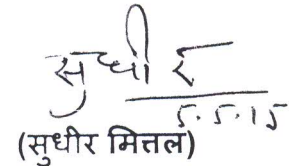 सुधीर
5.5.15
(सुधीर मित्तल)